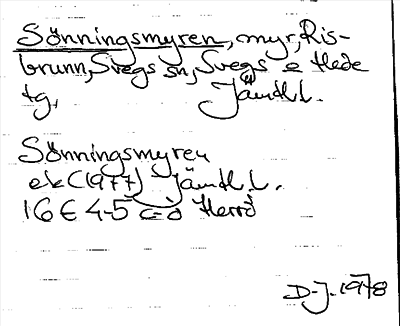 Sönningsmyren, myr, Ris-
brunn, Svegs sn, Svegs o Hede
tg, Jämtl.l.
Sönningsmyren
ek (1977) Jämtl.l.
16E 4-5 c-d Herrö
D-J. 1978